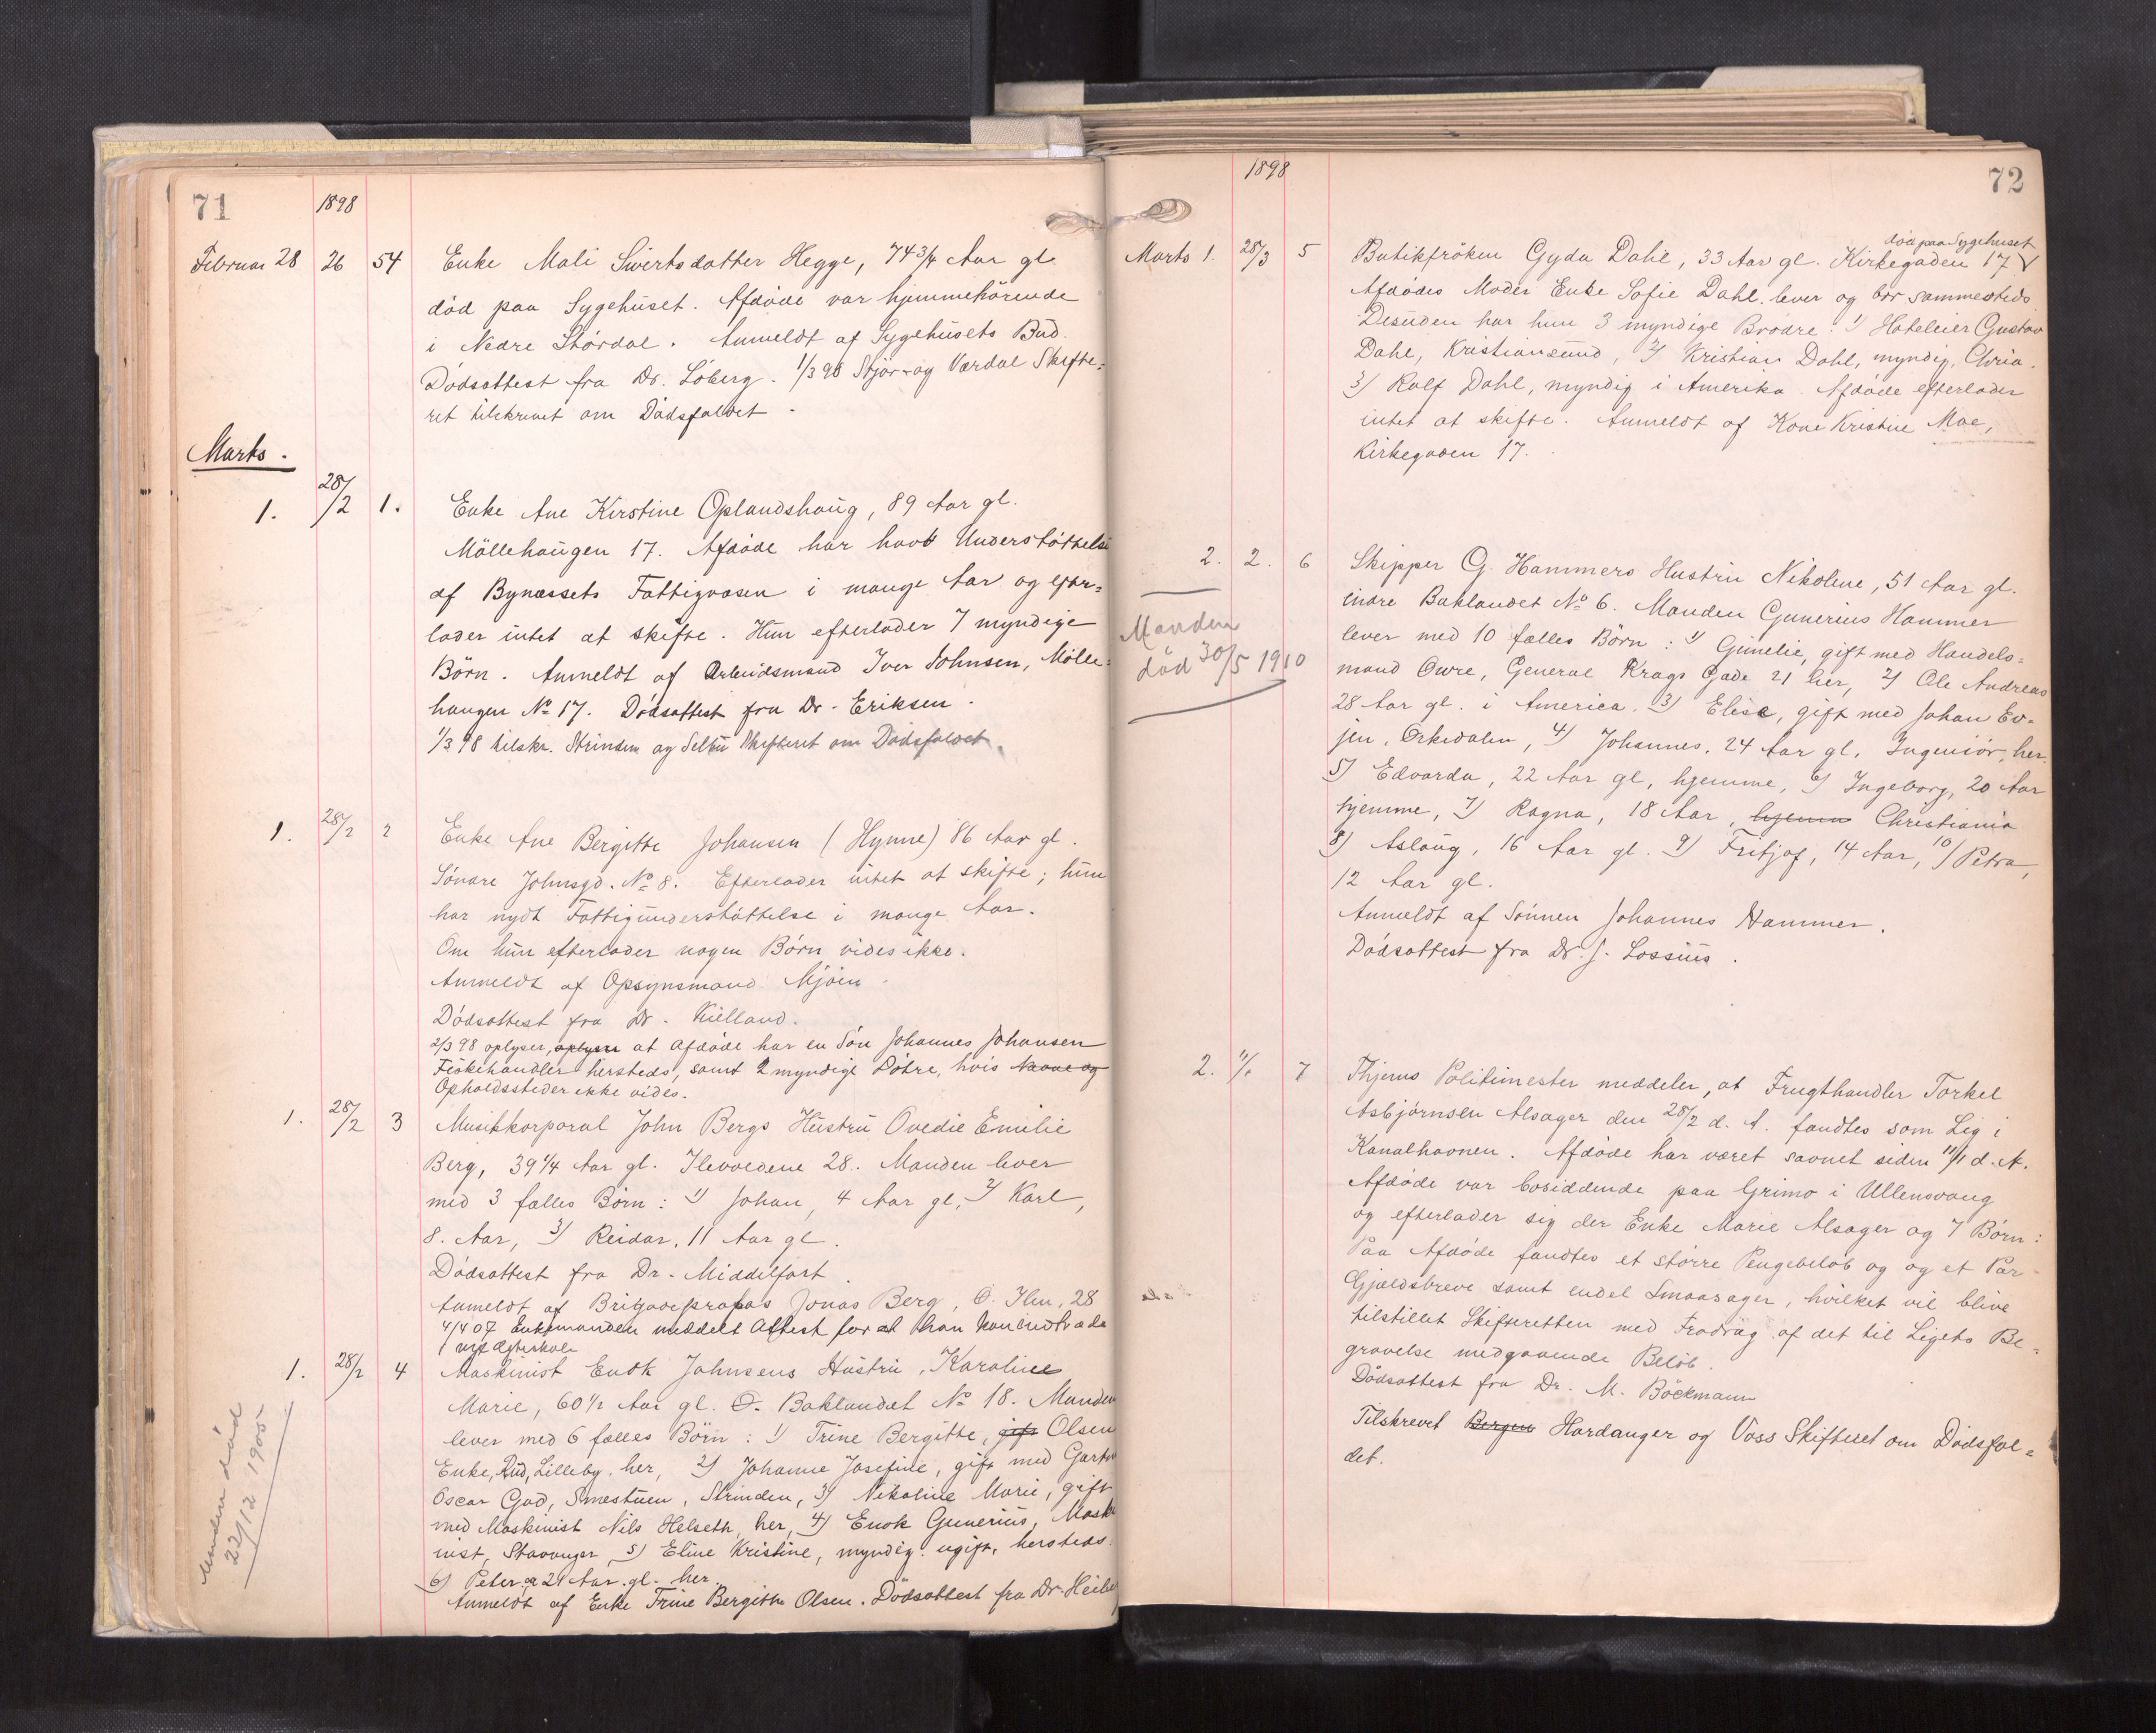 71
1898
Februar 28 26 54 Enke Mali Sivertsdatter Hegge, 74 3/4 Aar gl.
død paa Sygehuset. Afdøde var hjemmehørende
i Nedre Stördal. Anmeldt af Sygehusets Bud.
Dødsattest fra Dr. Løberg. 1/3 98 Stjør- og Værdal Skifte-
ret tilskrevet om Dødsfaldet.
Marts.
1. 28/2 1. Enke Ane Kirstine Oplandshaug, 89 Aar gl.
Möllehaugen 17. Afdøde har havt Understöttelse
af Bynæssets Fattigvæsen i mange Aar og efter-
lader intet at skifte. Hun efterlader 7 myndige
Børn. Anmeldt af Arbeidsmand Iver Johnsen, Mølle-
haugen No 17. Dødsattest fra Dr. Eriksen.
1/3 98 tilskr. Strinden og Selbu Skifteret om Dødsfaldet.
1. 28/2 2 Enke Ane Bergitte Johansen (Hynne) 86 Aar gl.
Søndre Johnsgd. No 8. Efterlader intet at skifte; hun
har nydt Fattigunderstøttelse i mange Aar.
Om hun efterlader nogen Børn vides ikke.
Anmeldt af Opsynsmand Mjøen.
Dødsattest fra Dr. Kielland.
2/3 98 oplyser, oplyses at Afdøde har en Søn Johannes Johansen
Fiskehandler hersteds, samt 2 myndige Døtre, hvis Navne og
Opholdssteder ikke vides.
1. 28/2 3 Musikkorporal John Bergs Hustru Ovedie Emilie
Berg, 39 1/4 Aar gl. Ilevoldene 28. Manden lever
med 3 fælles Børn: 1) Johan, 4 Aar gl, 2) Karl,
8. Aar, 3) Reidar, 11 Aar gl.
Dødsattest fra Dr. Middelfart.
Anmeldt af Jonas Berg, Ö. Ilen, 28
4/4 07 Enkemanden meddelt Attest for at han kan indtræde
i nyt Ægteskab
1. 28/2 4 Maskinist Enok Johnsens Hustru, Karoline
Marie, 60 1/2 Aar gl. Ø. Baklandet No 18. Manden
lever med 6 fælles Børn: 1) Trine Bergitte, gift Olsen
Enke, Rud, Lilleby. her, 2) Johanne Josefine, gift med Gartn
Oscar Gad, Smestuen, Strinden, 3) Nikoline Marie, gift
med Maskinist Nils Helseth, her, 4) Enok Gunerius, Maski
nist, Stavanger, 5) Eline Kristine, myndig. ugift, hersteds.
6) Peter, 21 Aar. gl. her.
Anmeldt af Enke Trine Bergitte Olsen. Dødsattest fra Dr. Heiberg
Manden død
22/12 1905
1898
72
Marts 1. 28/3 5 Butikfröken Gyda Dahl, 33 Aar gl. Kirkegaden 17
död paa Sygehuset
Afdödes Moder Enke Sofie Dahl lever og bor sammesteds
Desuden har hun 3 myndige Brødre: 1) Hoteleier Gustav
Dahl, Kristiansund, 2) Kristian Dahl, myndig, Chria.
3) Ralf Dahl, myndig i Amerika. Afdøde efterlader
intet at skifte. Anmeldt af Kone Kristine Moe,
Kirkegaden 17.
2. 2. 6 Skipper G. Hammers Hustru Nikoline, 51 Aar gl.
indre Baklandet No 6. Manden Gunerius Hammer
lever med 10 fælles Börn: 1) Gunelie, gift med Handels-
mand Owre, General Krags Gade 21 her, 2) Ole Andreas
28 Aar gl. i America. 3) Elise, gift med Johan Ev-
jen, Orkedalen, 4) Johannes, 24 Aar gl, Ingeniør, her.
5) Edvarda, 22 Aar gl, hjemme, 6) Ingeborg, 20 Aar
hjemme, 7) Ragna, 18 Aar, hjemme Christiania
8) Aslaug, 16 Aar gl. 9) Fritjof, 14 Aar, 10) Petra,
12 Aar gl.
Anmeldt af Sönnen Johannes Hammer.
Dödsattest fra Dr. J. Lossius.
Manden
død 30/5 1910
2. 11/1 7 Thjems Politimester meddeler, at Frugthandler Torkel
Asbjørnsen Alsager den 28/2 d. A. fandtes som Lig i
Kanalhavnen. Afdøde har været savnet siden 11/1 d. A.
Afdøde var bosiddende paa Grimo i Ullensvang
og efterlader sig der Enke Marie Alsager og 7 Børn:
Paa Afdøde fandtes et større Pengebeløb og og et Par
Gjældsbreve samt endel Smaasager, hvilket vil blive
tilstillet Skifteretten med Fradrag af det til Ligets Be-
gravelse medgaaende Beløb.
Dødsattest fra Dr. M. Böckmann
Tilskrevet Bergens Hardanger og Voss Skifteret om Dødsfal-
det.